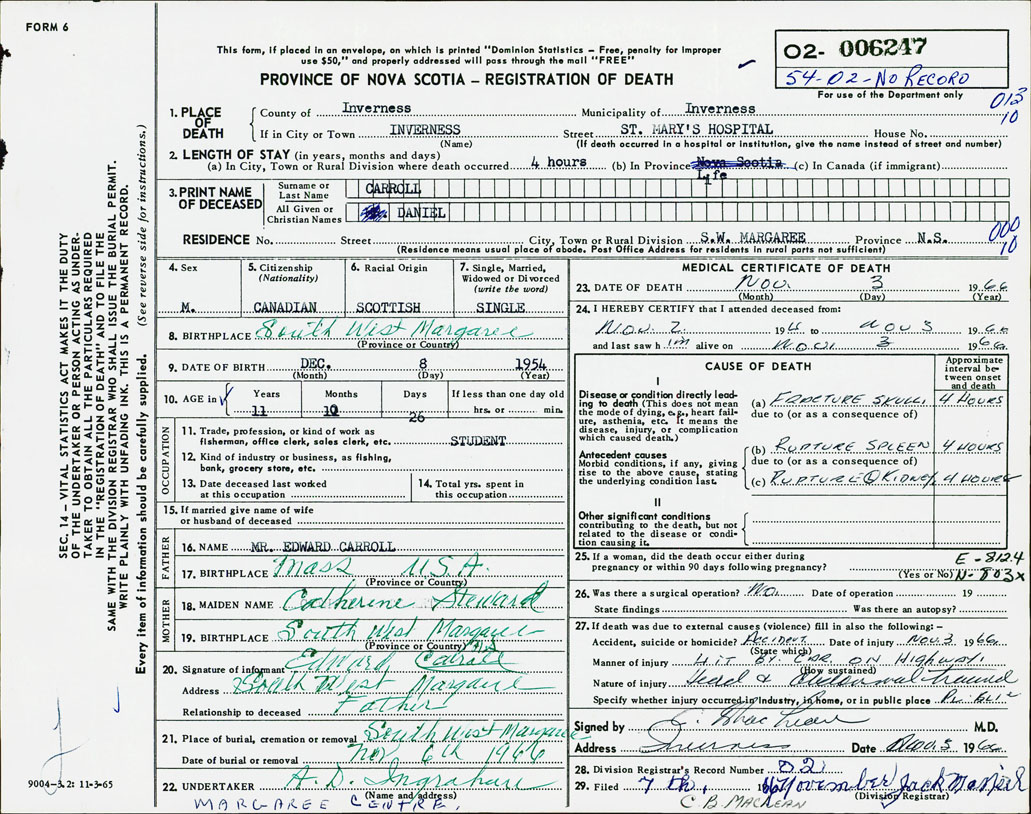 FORM 6
This form, if placed in an envelope, on which is printed "Dominion Statistics – Free, penalty for improper
use $50," and properly addressed will pass through the mail "FREE"
PROVINCE OF NOVA SCOTIA – REGISTRATION OF DEATH
02- 006247
54-02-NO RECORD
For use of the Department only
013
10
1. PLACE OF DEATH
County of Inverness Municipality of Inverness
If in City or Town INVERNESS Street ST. MARY'S HOSPITAL House No.
(Name) (If death occurred in a hospital or institution, give the name instead of street and number)
2. LENGTH OF STAY (in years, months and days)
(a) In City, Town or Rural Division where death occurred 4 hours (b) In Province Nova Scotia Life (c) In Canada (if immigrant)
3. PRINT NAME OF DECEASED
Surname or Last Name CARROLL
All Given or Christian Names DANIEL
RESIDENCE No. Street City, Town or Rural Division S.W. MARGAREE Province N.S.
(Residence means usual place of abode. Post Office Address for residents in rural parts not sufficient)
000
10
4. Sex M.
5. Citizenship (Nationality) CANADIAN
6. Racial Origin SCOTTISH
7. Single, Married, Widowed or Divorced (write the word) SINGLE
8. BIRTHPLACE South West Margaree
(Province or Country)
9. DATE OF BIRTH DEC. 8 1954
(Month) (Day) (Year)
10. AGE in Years Months Days If less than one day old
11 10 26 hrs. or min.
OCCUPATION
11. Trade, profession, or kind of work as
fisherman, office clerk, sales clerk, etc. STUDENT
12. Kind of industry or business, as fishing,
bank, grocery store, etc.
13. Date deceased last worked
at this occupation
14. Total yrs. spent in
this occupation
15. If married give name of wife
or husband of deceased
FATHER
16. NAME MR. EDWARD CARROLL
17. BIRTHPLACE Mass U.S.A.
(Province or Country)
MOTHER
18. MAIDEN NAME Catherine Steward
19. BIRTHPLACE South West Margaree N.S
(Province or Country)
20. Signature of informant Edward Carroll
Address South West Margaree
Relationship to deceased Father
21. Place of burial, cremation or removal South West Margaree
Date of burial or removal Nov 6th 1966
22. UNDERTAKER A. D. Ingraham
(Name and address)
MARGAREE CENTRE,
MEDICAL CERTIFICATE OF DEATH
23. DATE OF DEATH Nov. 3 1966
(Month) (Day) (Year)
24. I HEREBY CERTIFY that I attended deceased from:
Nov. 2 19 to Nov 3 1966
and last saw him alive on Nov. 3 1966
CAUSE OF DEATH
Approximate interval between onset and death
I
Disease or condition directly leading to death (This does not mean the mode of dying, e.g., heart failure, asthenia, etc. It means the disease, injury, or complication which caused death.)
(a) FRACTURE SKULL 4 HOURS
due to (or as a consequence of)
Antecedent causes
Morbid conditions, if any, giving rise to the above cause, stating the underlying condition last.
(b) RUPTURE SPLEEN 4 HOURS
due to (or as a consequence of)
(c) RUPTURE KIDNEY 4 HOURS
II
Other significant conditions contributing to the death, but not related to the disease or condition causing it.
25. If a woman, did the death occur either during
pregnancy or within 90 days following pregnancy?
(Yes or No)
E-8124
N-803x
26. Was there a surgical operation? No. Date of operation 19
State findings Was there an autopsy?
27. If death was due to external causes (violence) fill in also the following:–
Accident, suicide or homicide? Accident Date of injury Nov. 3 1966
(State which)
Manner of injury HIT BY CAR ON HIGHWAY.
(How sustained)
Nature of injury Head &
Specify whether injury occurred in industry, in home, or in public place PUBLIC
Signed by M.D.
Address Inverness Date Nov. 3 1966
28. Division Registrar's Record Number 82
29. Filed 7th, November
(Division Registrar)
C B MACLEAN
SEC. 14 – VITAL STATISTICS ACT MAKES IT THE DUTY
OF THE UNDERTAKER OR PERSON ACTING AS UNDER-
TAKER TO OBTAIN ALL THE PARTICULARS REQUIRED
IN THE "REGISTRATION OF DEATH" AND TO FILE THE
SAME WITH THE DIVISION REGISTRAR WHO SHALL ISSUE THE BURIAL PERMIT.
WRITE PLAINLY WITH UNFADING INK. THIS IS A PERMANENT RECORD.
Every item of information should be carefully supplied. (See reverse side for instructions.)
9004-3.2: 11-3-65